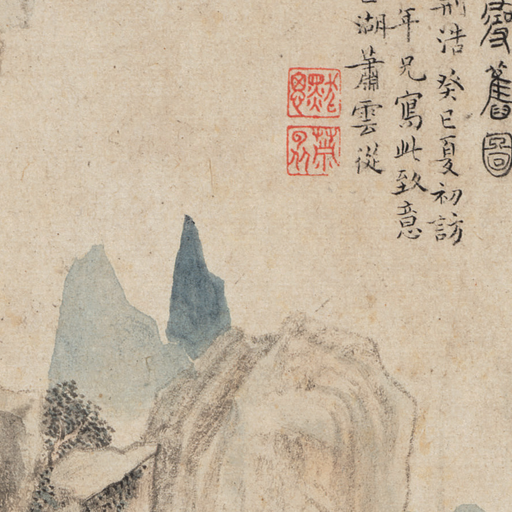 舊圖
浩癸巳夏初訪
年兄寫此致意
湖蕭雲從